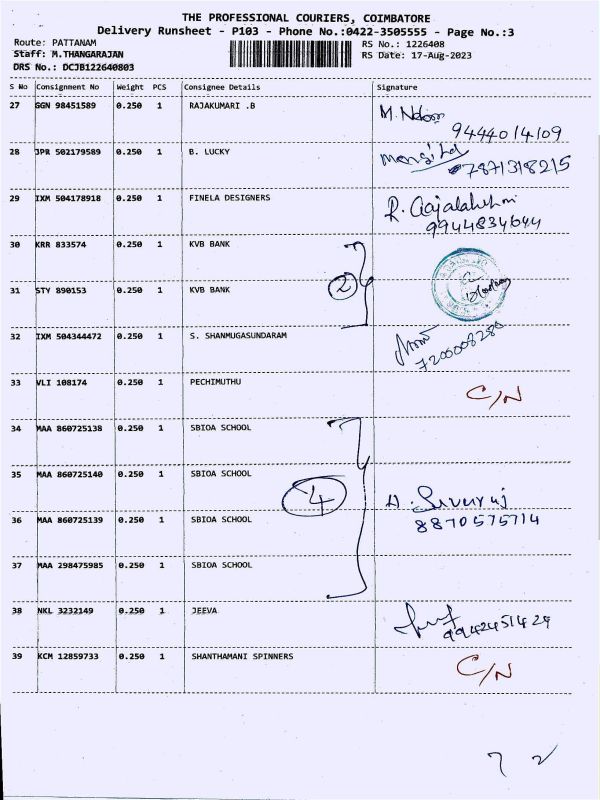 THE PROFESSIONAL COURIERS, COIMBATORE
Delivery Runsheet - P103 - Phone No.:0422-3505555 - Page No.:3
Route: PATTANAM RS No.: 1226408
Staff: M.THANGARAJAN RS Date: 17-Aug-2023
DRS No.: DCJB122640803
S No Consignment No Weight PCS Consignee Details Signature
27 GGN 98451589 0.250 1 RAJAKUMARI .B M.
9444014109
28 JPR 502179589 0.250 1 B. LUCKY
7871318215
29 IXM 504178918 0.250 1 FINELA DESIGNERS R.
9944834644
30 KRR 833574 0.250 1 KVB BANK
2
31 STY 890153 0.250 1 KVB BANK
32 IXM 504344472 0.250 1 S. SHANMUGASUNDARAM
7200008280
33 VLI 108174 0.250 1 PECHIMUTHU C/N
34 MAA 860725138 0.250 1 SBIOA SCHOOL
35 MAA 860725140 0.250 1 SBIOA SCHOOL
4
36 MAA 860725139 0.250 1 SBIOA SCHOOL
8870575714
37 MAA 298475985 0.250 1 SBIOA SCHOOL
38 NKL 3232149 0.250 1 JEEVA
9942451424
39 KCM 12859733 0.250 1 SHANTHAMANI SPINNERS C/N